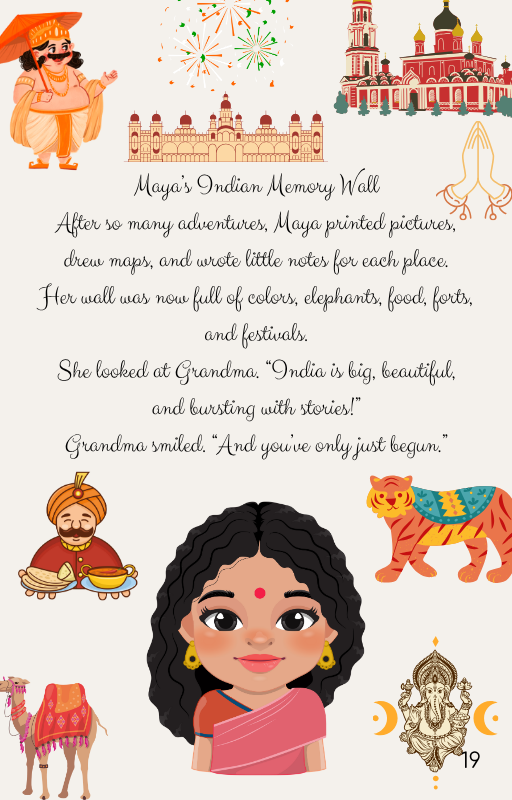 Maya's Indian Memory Wall
After so many adventures, Maya printed pictures,
drew maps, and wrote little notes for each place.
Her wall was now full of colors, elephants, food, forts,
and festivals.
She looked at Grandma. “India is big, beautiful,
and bursting with stories!”
Grandma smiled. “And you've only just begun.”
19